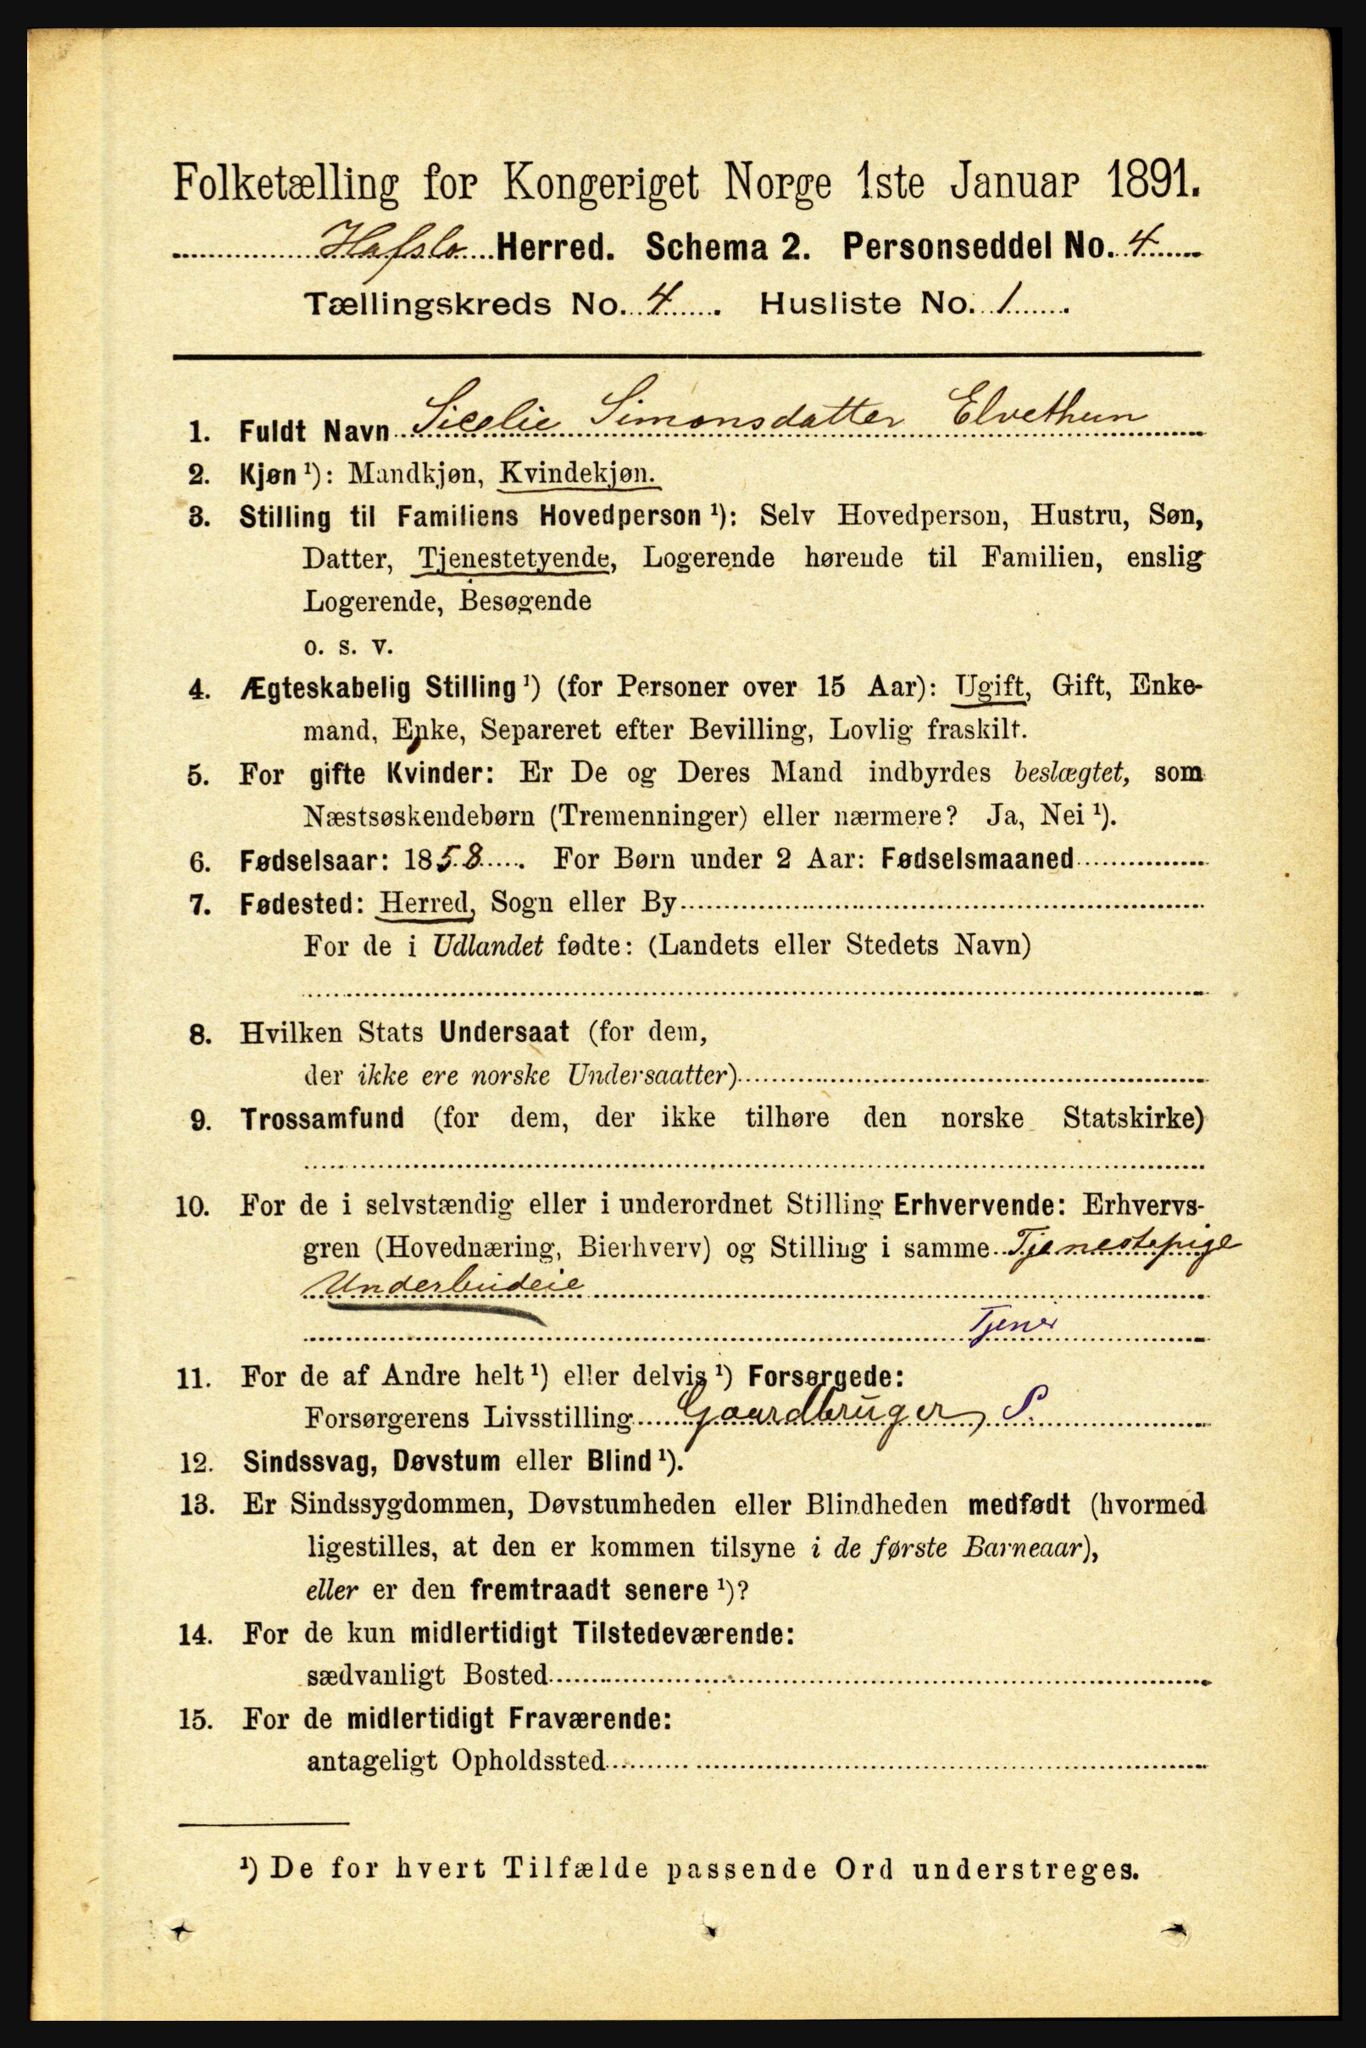 Folketælling for Kongeriget Norge 1ste Januar 1891.
Hafslo Herred. Schema 2. Personseddel No. 4
Tællingskreds No. 4. Husliste No. 1.
1. Fuldt Navn Sicelie Simonsdatter Elvethun
2. Kjøn ¹): Mandkjøn, Kvindekjøn.
3. Stilling til Familiens Hovedperson ¹): Selv Hovedperson, Hustru, Søn,
Datter, Tjenestetyende, Logerende hørende til Familien, enslig
Logerende, Besøgende
o. s. v.
4. Ægteskabelig Stilling ¹) (for Personer over 15 Aar): Ugift, Gift, Enke-
mand, Enke, Separeret efter Bevilling, Lovlig fraskilt.
5. For gifte Kvinder: Er De og Deres Mand indbyrdes beslægtet, som
Næstsøskendebørn (Tremenninger) eller nærmere? Ja, Nei ¹).
6. Fødselsaar: 1858. For Børn under 2 Aar: Fødselsmaaned
7. Fødested: Herred, Sogn eller By
For de i Udlandet fødte: (Landets eller Stedets Navn)
8. Hvilken Stats Undersaat (for dem,
der ikke ere norske Undersaatter)
9. Trossamfund (for dem, der ikke tilhøre den norske Statskirke)
10. For de i selvstændig eller i underordnet Stilling Erhvervende: Erhvervs-
gren (Hovednæring, Bierhverv) og Stilling i samme Tjenestepige
Underbudeie
Tjener
11. For de af Andre helt ¹) eller delvis ¹) Forsørgede:
Forsørgerens Livsstilling Gaardbruger, S.
12. Sindssvag, Døvstum eller Blind ¹).
13. Er Sindssygdommen, Døvstumheden eller Blindheden medfødt (hvormed
ligestilles, at den er kommen tilsyne i de første Barneaar),
eller er den fremtraadt senere ¹)?
14. For de kun midlertidigt Tilstedeværende:
sædvanligt Bosted
15. For de midlertidigt Fraværende:
antageligt Opholdssted
¹) De for hvert Tilfælde passende Ord understreges.